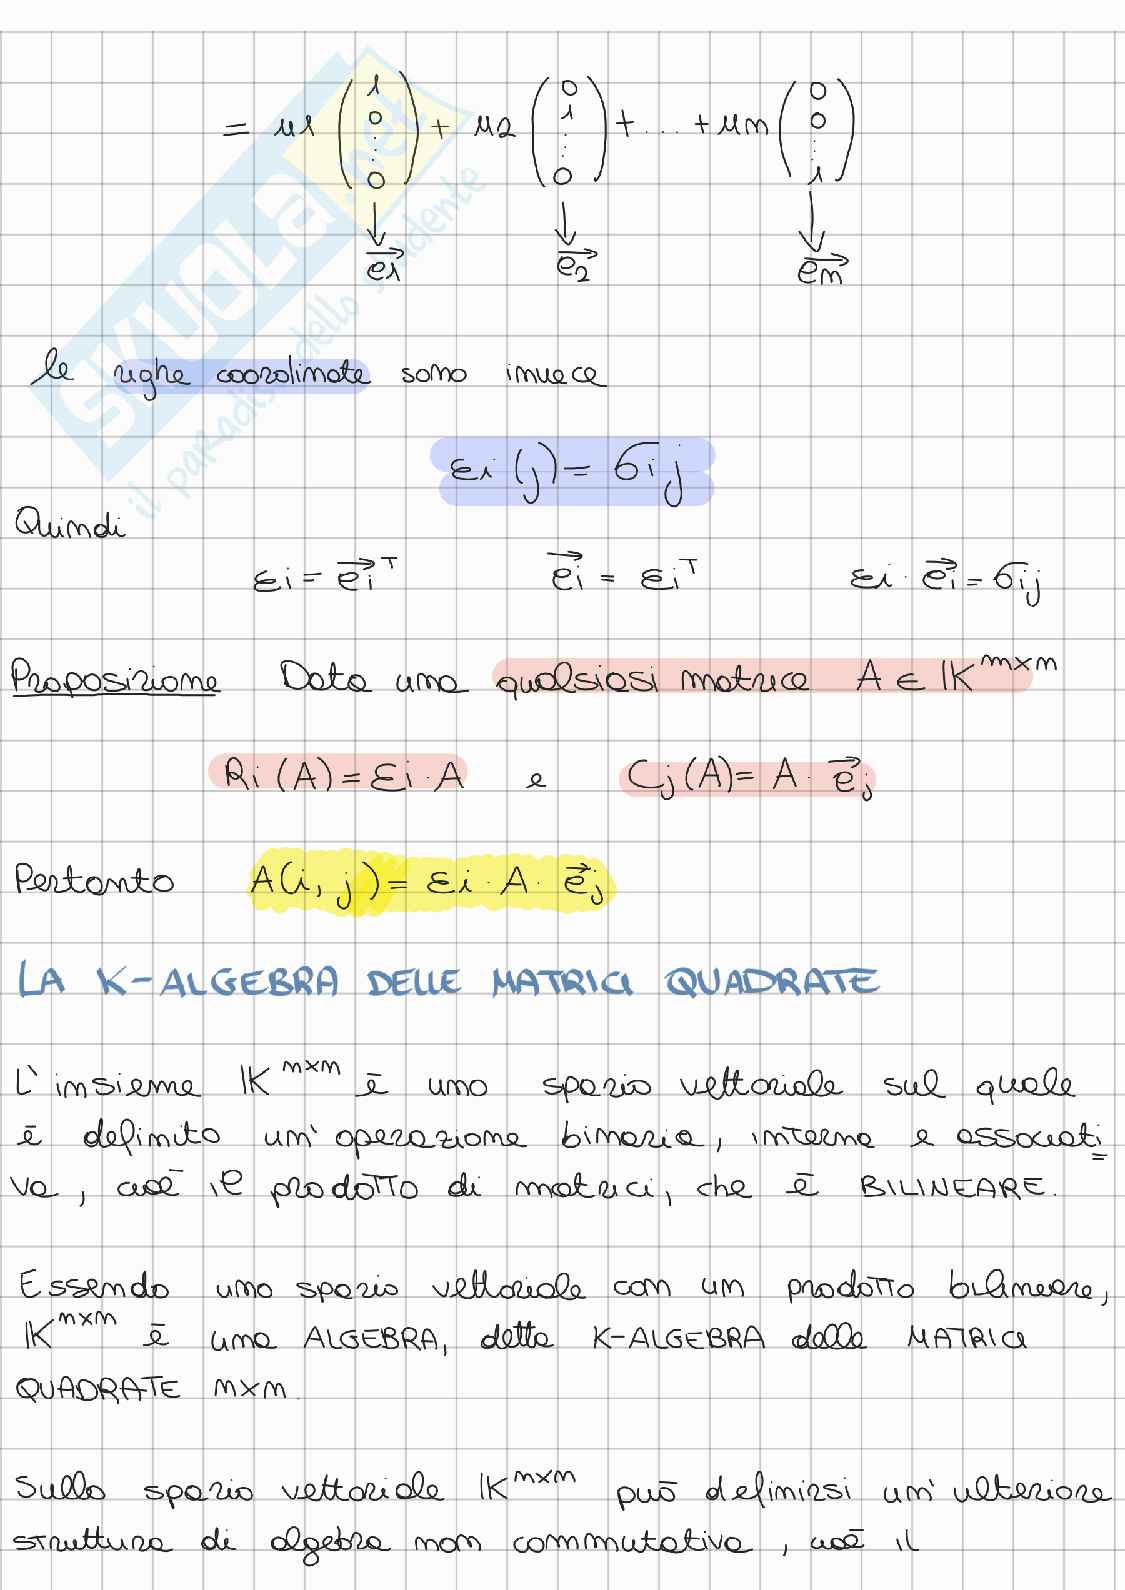 = u1 (1 0 ⋮ 0) + u2 (0 1 ⋮ 0) + ... + un (0 0 ⋮ 1)
↓ ↓ ↓
e⃗1 e⃗2 e⃗n
le righe coordinate sono invece
εi (j) = δij
Quindi
εi = e⃗i^T e⃗i = εi^T εi · e⃗i = δij
Proposizione Data una qualsiasi matrice A ∈ K^m×n
Ri (A) = εi · A e Cj (A) = A · e⃗j
Pertanto A(i, j) = εi · A · e⃗j
LA K-ALGEBRA DELLE MATRICI QUADRATE
L'insieme K^n×n è uno spazio vettoriale sul quale
è definito un'operazione binaria, interna e associati
va, cioè il prodotto di matrici, che è BILINEARE.
Essendo uno spazio vettoriale con un prodotto bilineare,
K^n×n è una ALGEBRA, detta K-ALGEBRA delle MATRICI
QUADRATE n×n.
Sullo spazio vettoriale K^n×n può definirsi un'ulteriore
struttura di algebra non commutativa, cioè il
SKUOLA.net
il paradiso dello studente